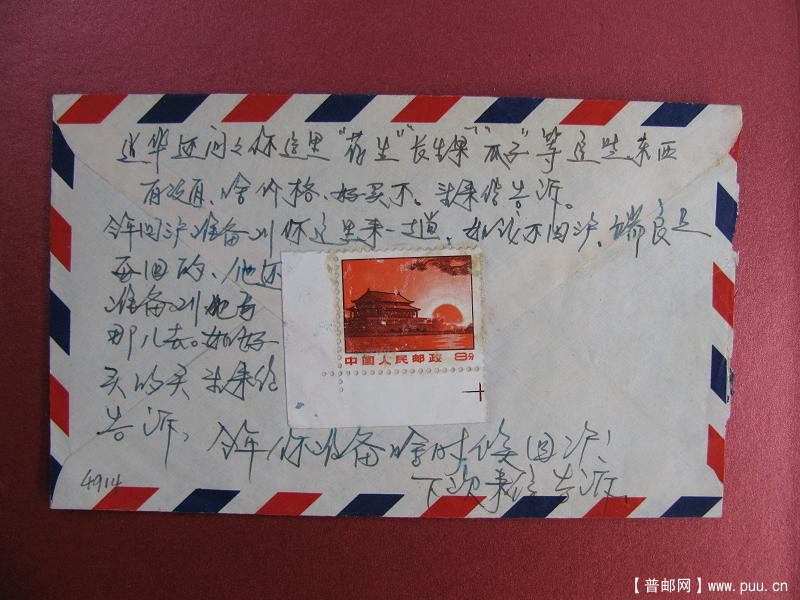 还问问你这里"花生""长生果""瓜子"等这些东西
有没有、啥价格、好买不、来信告诉。
今年回沪准备到你这里来一道、如该不回沪、瑞良是
要回的、他还
准备到她哥
那儿去。如好
买的买 来信
告诉。 今年你准备啥时候回沪!
下次来信告诉、
中国人民邮政 8分
4914
【普邮网】www.puu.cn